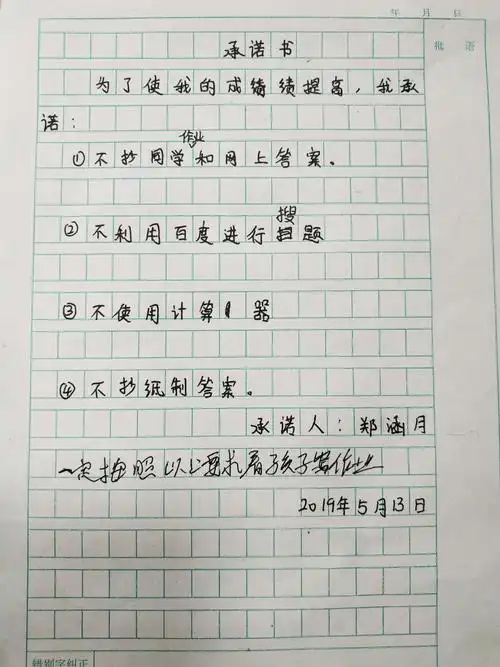 年 月 日
批 语
承诺书
为了使我的成绩绩提高，我承
诺：
①不抄同学作业和网上答案。
②不利用百度进行搜题
③不使用计算器
④不抄纸制答案。
承诺人：郑涵月
一定按照以上要求看孩子写作业
2019年5月13日
错别字纠正